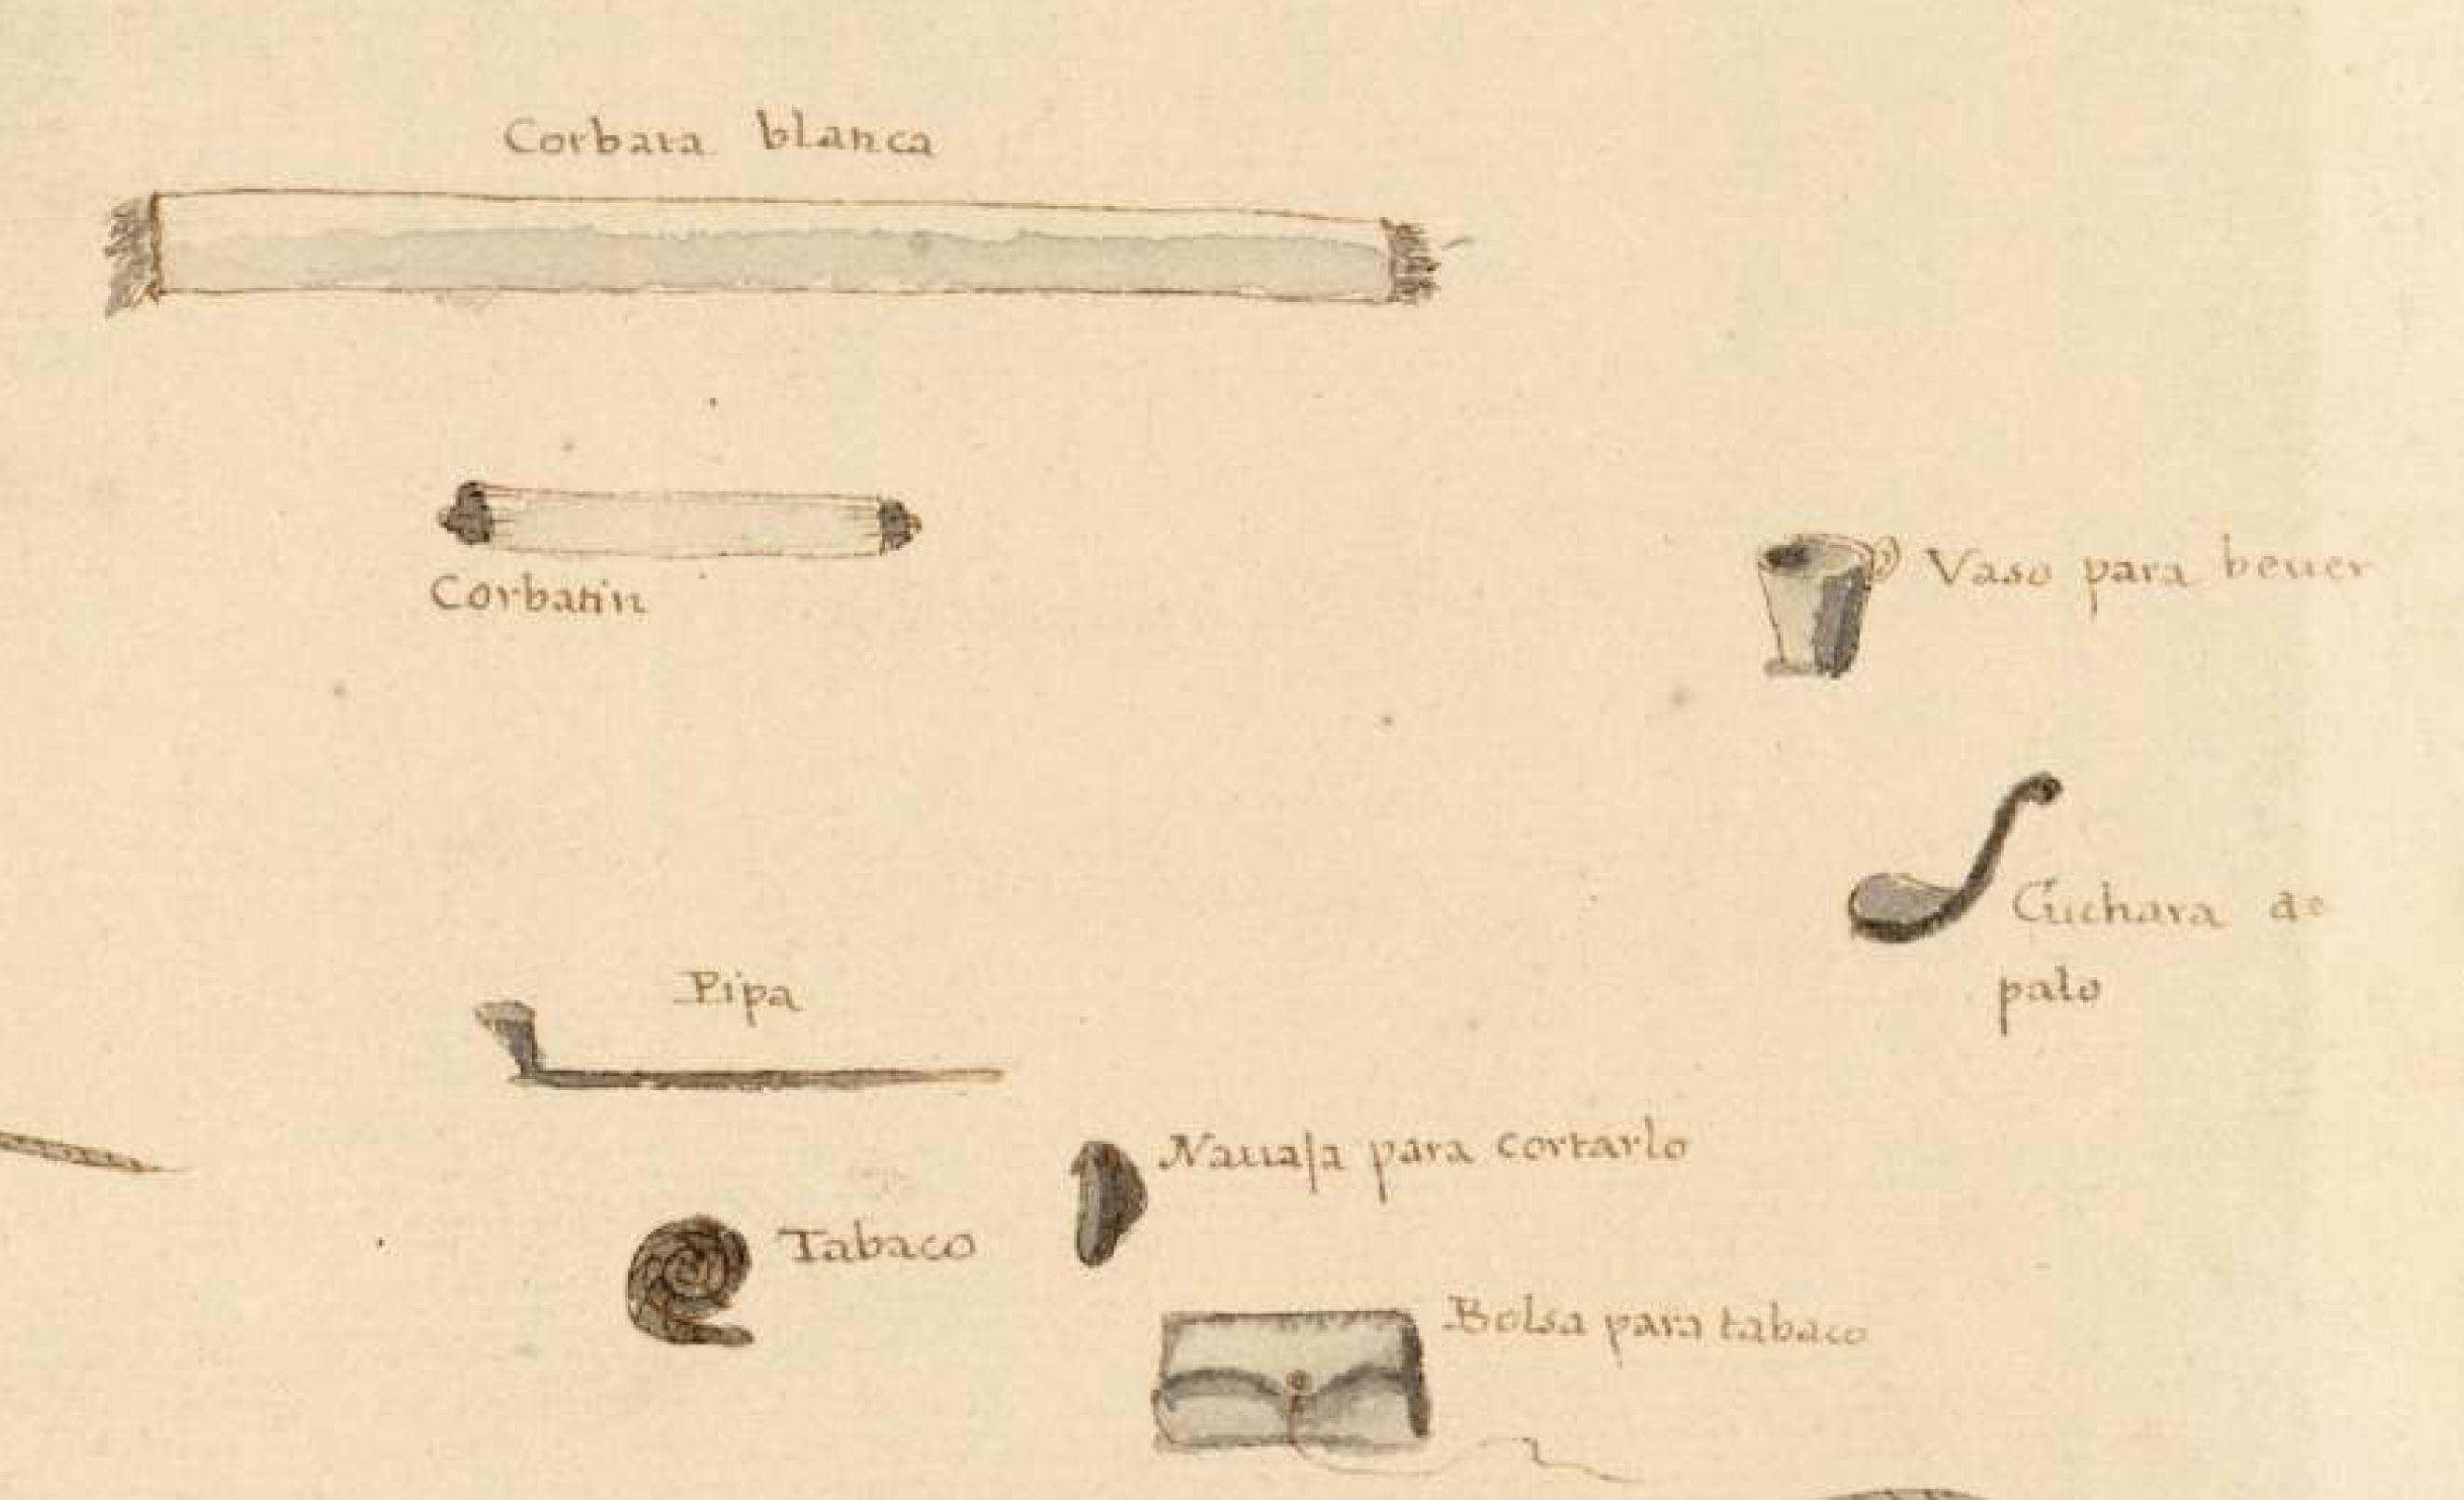 Corbata blanca
Corbatin
Vaso para beuer
Cuchara de
palo
Pipa
Nauaja para cortarlo
Tabaco
Bolsa para tabaco